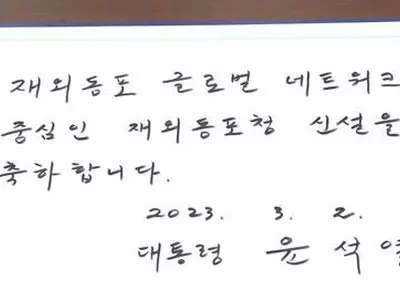 재외동포 글로벌 네트워크
중심인 재외동포청 신설을
축하합니다.
2023. 3. 2.
대통령 윤 석 열